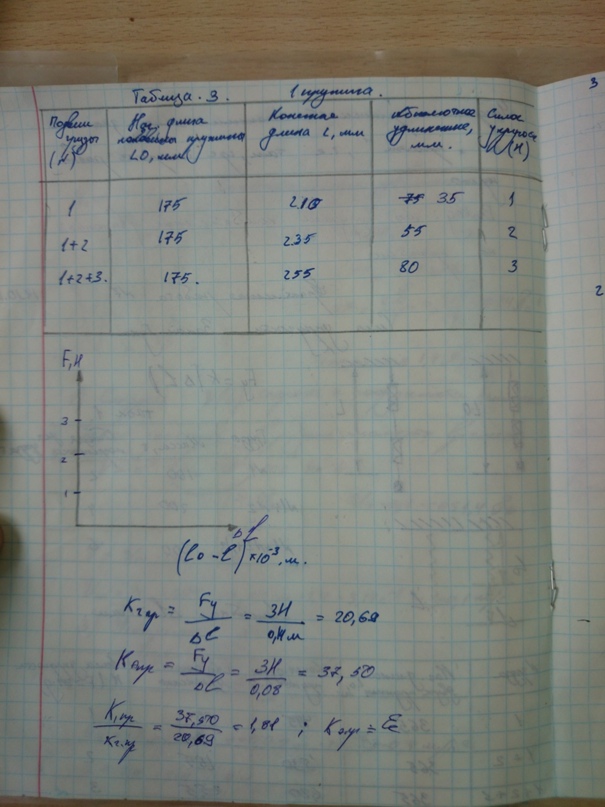 Таблица. 3. 1 пружина.
Подвеш грузы (Н)
Нач. длина пружины L0, мм
Конечная длина L, мм
Абсолютное удлинение, мм.
Сила упругости (Н)
1 175 210 35 1
1+2 175 235 55 2
1+2+3. 175. 255 80 3
3
2
F, Н
3
2
1
Δl
(l0 - l) ×10⁻³ м.
Fy / Δl = 3Н / = 20,69
Fy / Δl = 3Н / 0,08 = 37,50
= 37,50 / 20,69 = 1,81 ;